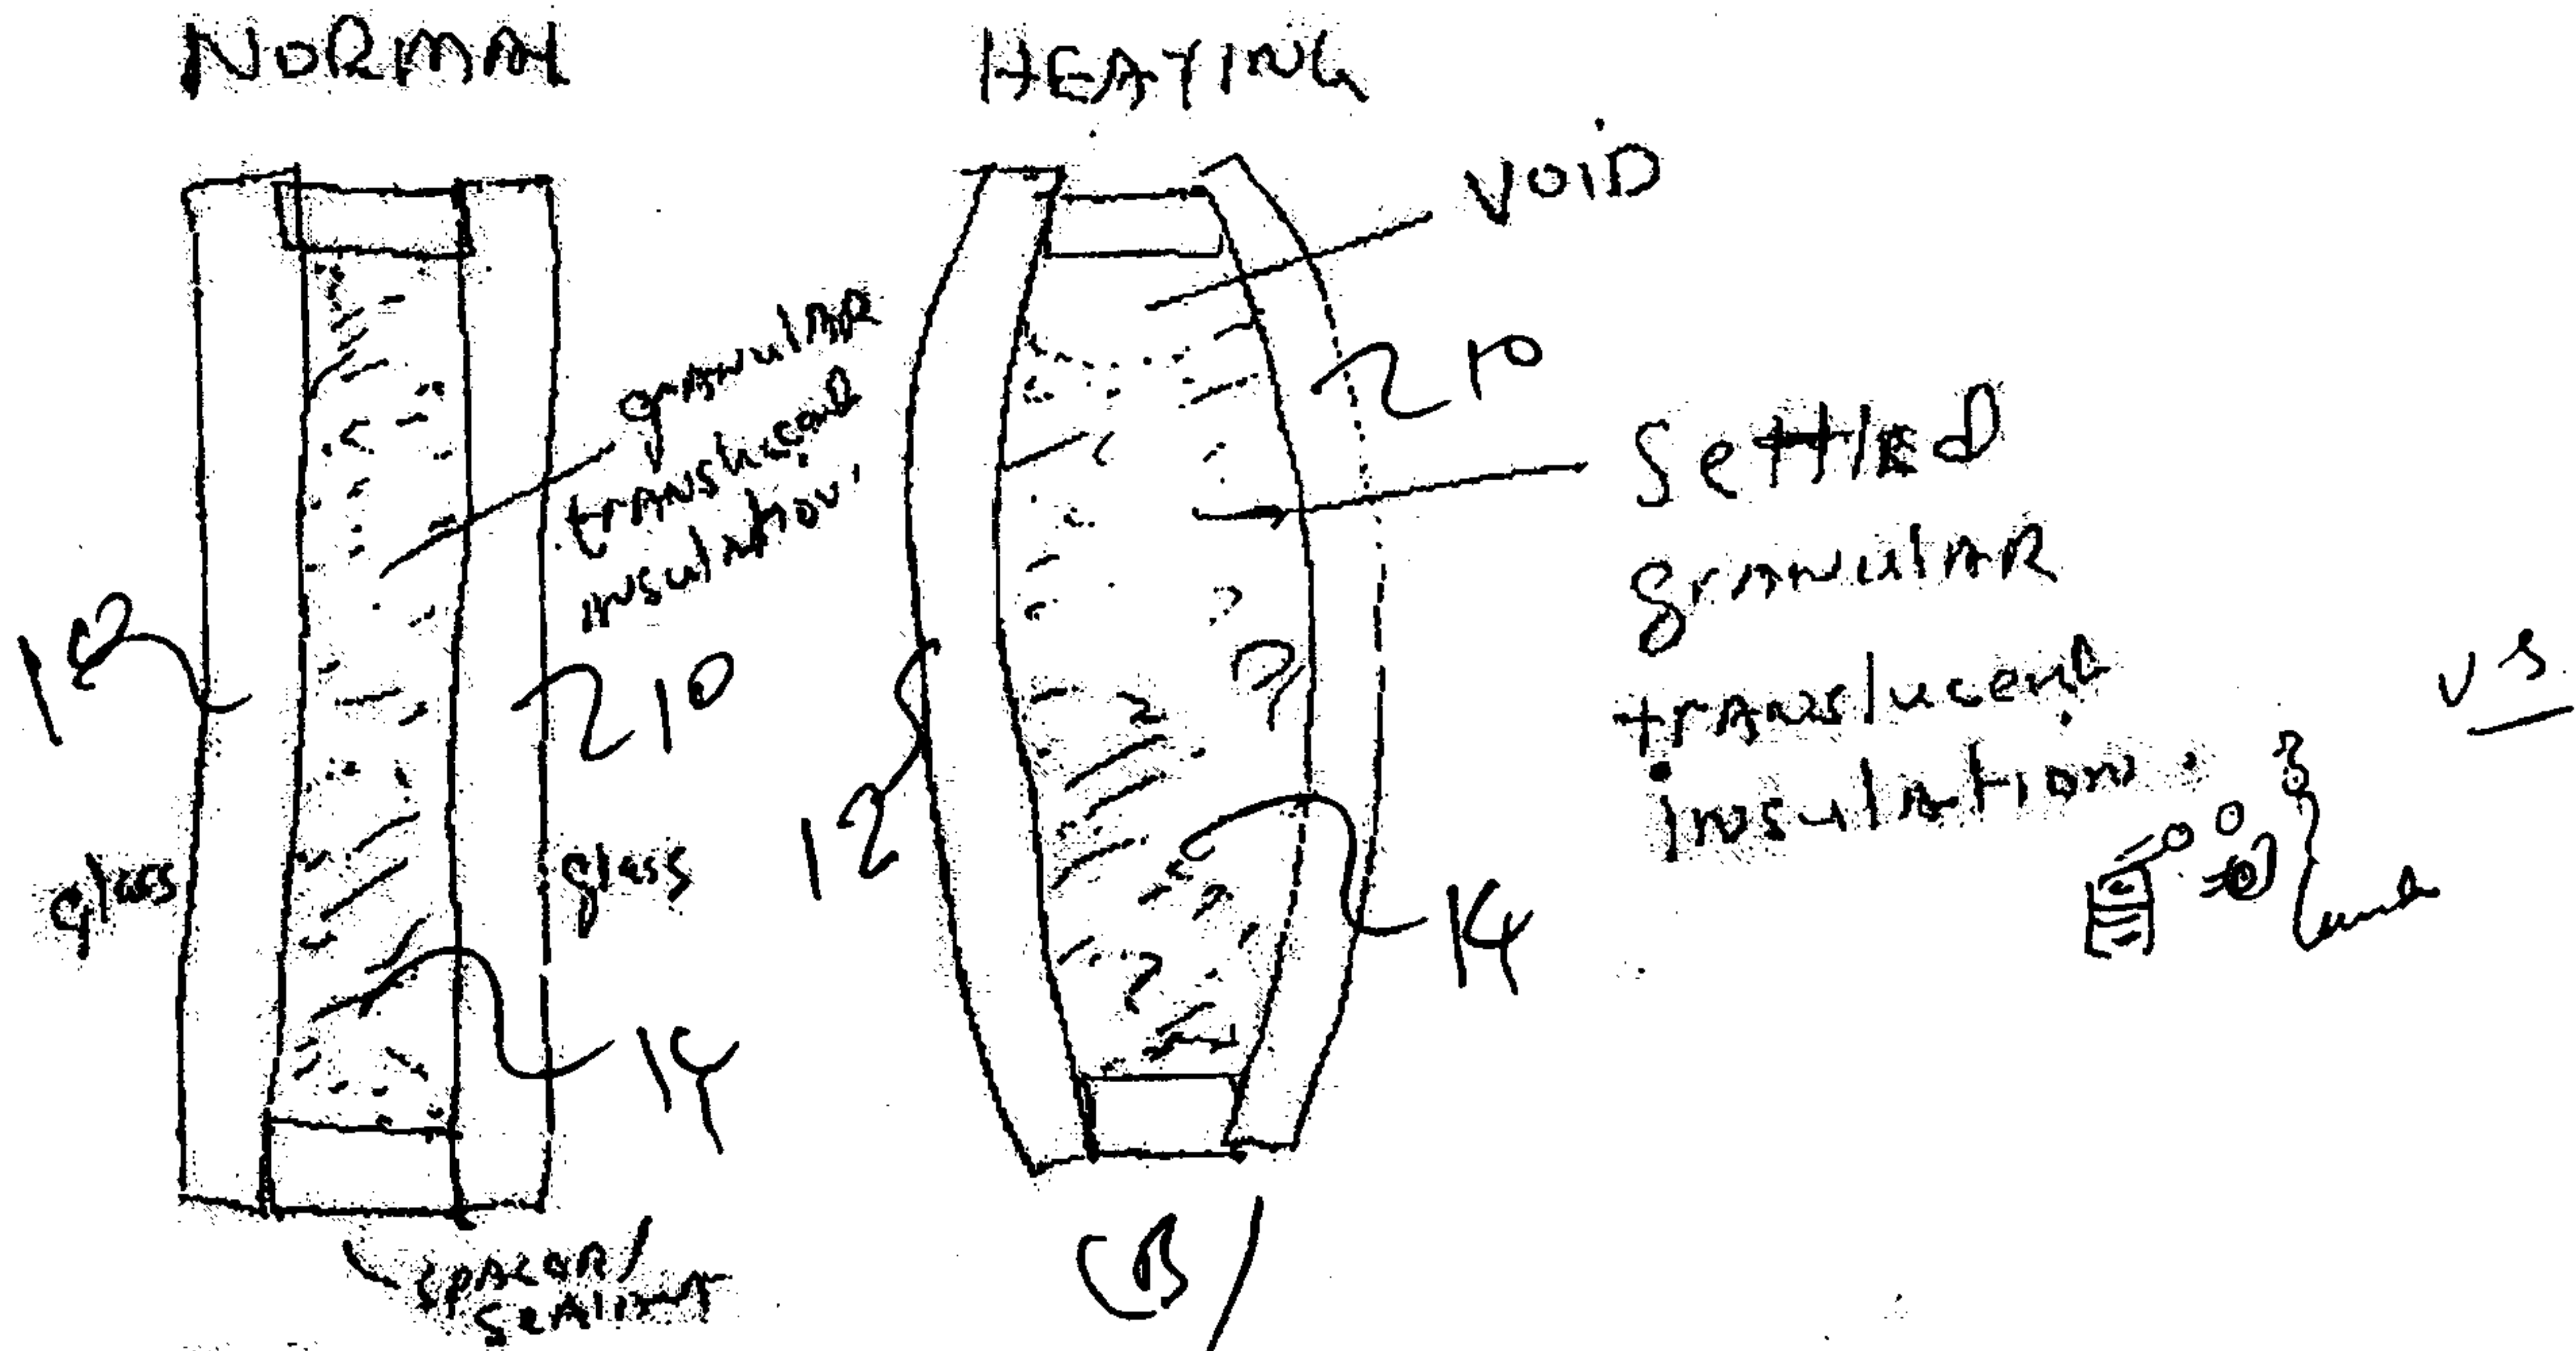 NORMAL
HEATING
VOID
granular
translucent
insulation
10
Settled
granular
translucent
insulation
vs
10
12
glass
glass
12
14
14
spacer/
sealant
(B)